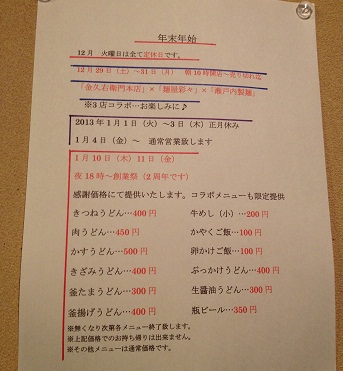 年末年始
12月 火曜日は全て定休日です。
12月29日(土)～31日(月) 朝10時開店～売り切れ迄
「金久右衛門本店」×「麺屋彩々」×「瀬戸内製麺」
※3店コラボ…お楽しみに♪
2013年1月1日(火)～3日(木)正月休み
1月4日(金)～ 通常営業致します
1月10日(木)11日(金)
夜18時～創業祭(2周年です)
感謝価格にて提供いたします。コラボメニューも限定提供
きつねうどん…400円 牛めし(小)…200円
肉うどん…450円 かやくご飯…100円
かすうどん…500円 卵かけご飯…100円
きざみうどん…400円 ぶっかけうどん…400円
釜たまうどん…300円 生醤油うどん…300円
釜揚げうどん…400円 瓶ビール…350円
※無くなり次第各メニュー終了致します。
※上記価格でのお持ち帰りは出来ません。
※その他メニューは通常価格です。